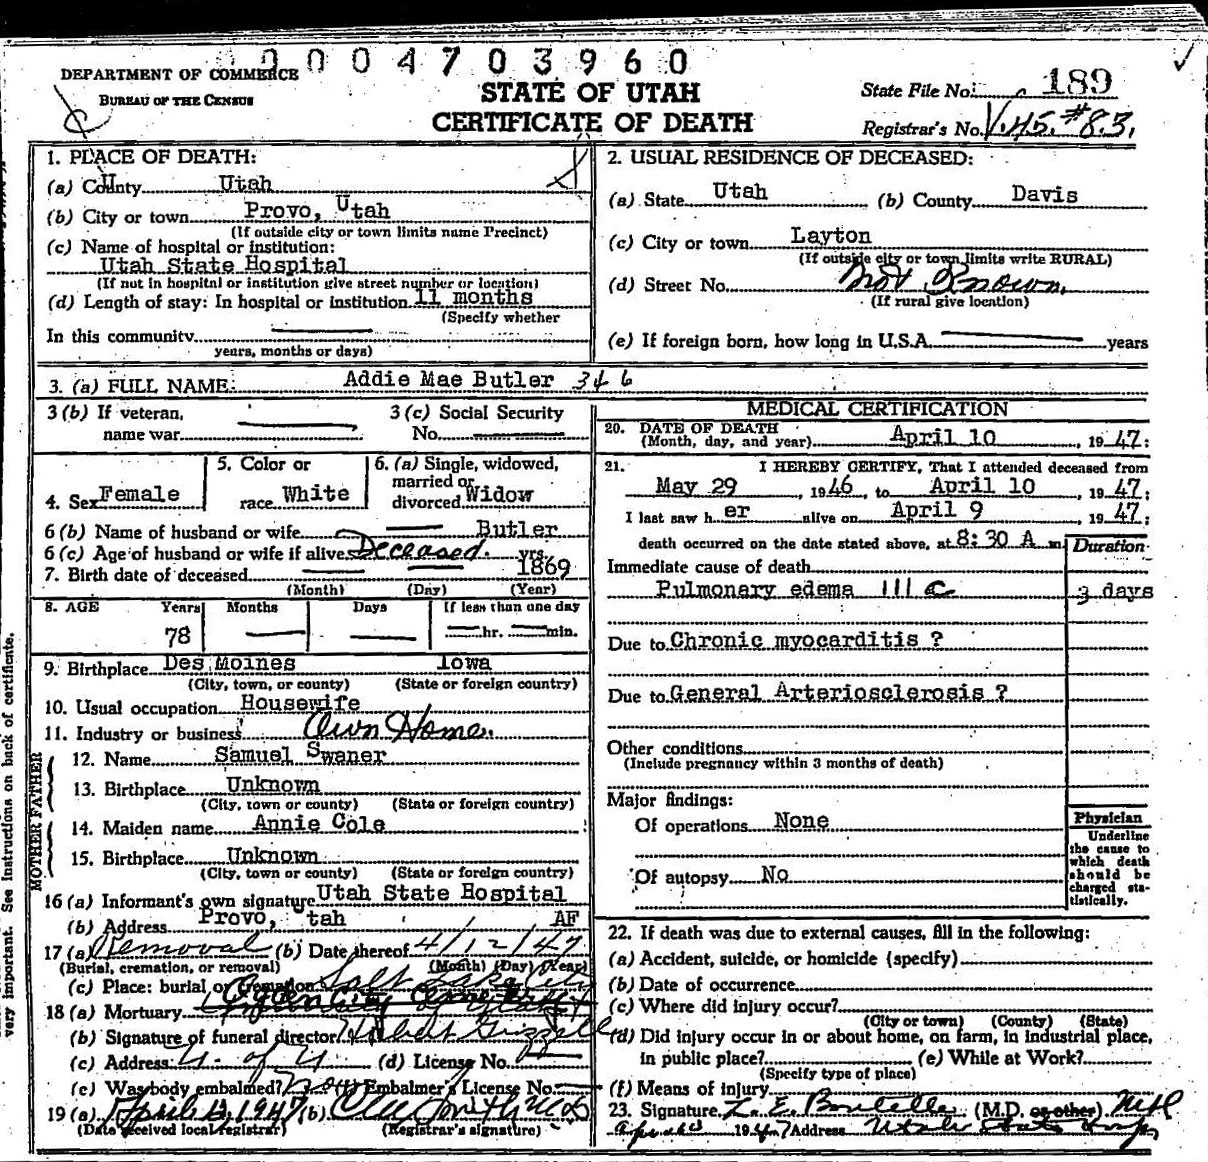 0004703960
DEPARTMENT OF COMMERCE
BUREAU OF THE CENSUS
STATE OF UTAH
CERTIFICATE OF DEATH
State File No. 189
Registrar's No. V.45. #83.
1. PLACE OF DEATH:
(a) County Utah
(b) City or town Provo, Utah
(If outside city or town limits name Precinct)
(c) Name of hospital or institution:
Utah State Hospital
(If not in hospital or institution give street number or location)
(d) Length of stay: In hospital or institution 11 months
(Specify whether
In this community
years, months or days)
2. USUAL RESIDENCE OF DECEASED:
(a) State Utah (b) County Davis
(c) City or town Layton
(If outside city or town limits write RURAL)
(d) Street No. Not Known
(If rural give location)
(e) If foreign born, how long in U.S.A. years
3. (a) FULL NAME: Addie Mae Butler 346
3 (b) If veteran, name war
3 (c) Social Security No.
4. Sex Female
5. Color or race White
6. (a) Single, widowed, married or divorced Widow
6 (b) Name of husband or wife Butler
6 (c) Age of husband or wife if alive Deceased. yrs.
7. Birth date of deceased 1869
(Month) (Day) (Year)
8. AGE Years Months Days If less than one day
78 hr. min.
9. Birthplace Des Moines Iowa
(City, town, or county) (State or foreign country)
10. Usual occupation Housewife
11. Industry or business Own Home.
FATHER
12. Name Samuel Swaner
13. Birthplace Unknown
(City, town or county) (State or foreign country)
MOTHER
14. Maiden name Annie Cole
15. Birthplace Unknown
(City, town or county) (State or foreign country)
16 (a) Informant's own signature Utah State Hospital
(b) Address Provo, Utah AF
17 (a) Removal (b) Date thereof 4/12/47
(Burial, cremation, or removal) (Month) (Day) (Year)
(c) Place: burial or cremation Salt Lake City
18 (a) Mortuary
(b) Signature of funeral director
(c) Address U. of U (d) License No.
(e) Was body embalmed? no (f) Embalmer's License No.
19 (a) April 12, 1947 (b)
(Date received local registrar) (Registrar's signature)
MEDICAL CERTIFICATION
20. DATE OF DEATH
(Month, day, and year) April 10, 1947:
21. I HEREBY CERTIFY, That I attended deceased from
May 29, 1946, to April 10, 1947:
I last saw her alive on April 9 1947:
death occurred on the date stated above, at 8:30 A m Duration
Immediate cause of death
Pulmonary edema 111 c 3 days
Due to Chronic myocarditis ?
Due to General Arteriosclerosis ?
Other conditions
(Include pregnancy within 3 months of death)
Major findings:
Of operations None
Of autopsy No
Physician
Underline
the cause to
which death
should be
charged sta-
tistically.
22. If death was due to external causes, fill in the following:
(a) Accident, suicide, or homicide (specify)
(b) Date of occurrence
(c) Where did injury occur?
(City or town) (County) (State)
(d) Did injury occur in or about home, on farm, in industrial place,
in public place? (e) While at Work?
(Specify type of place)
(f) Means of injury
23. Signature (M.D. or other) MD
1947 Address Utah State Hosp
See instructions on back of certificate.
very important.